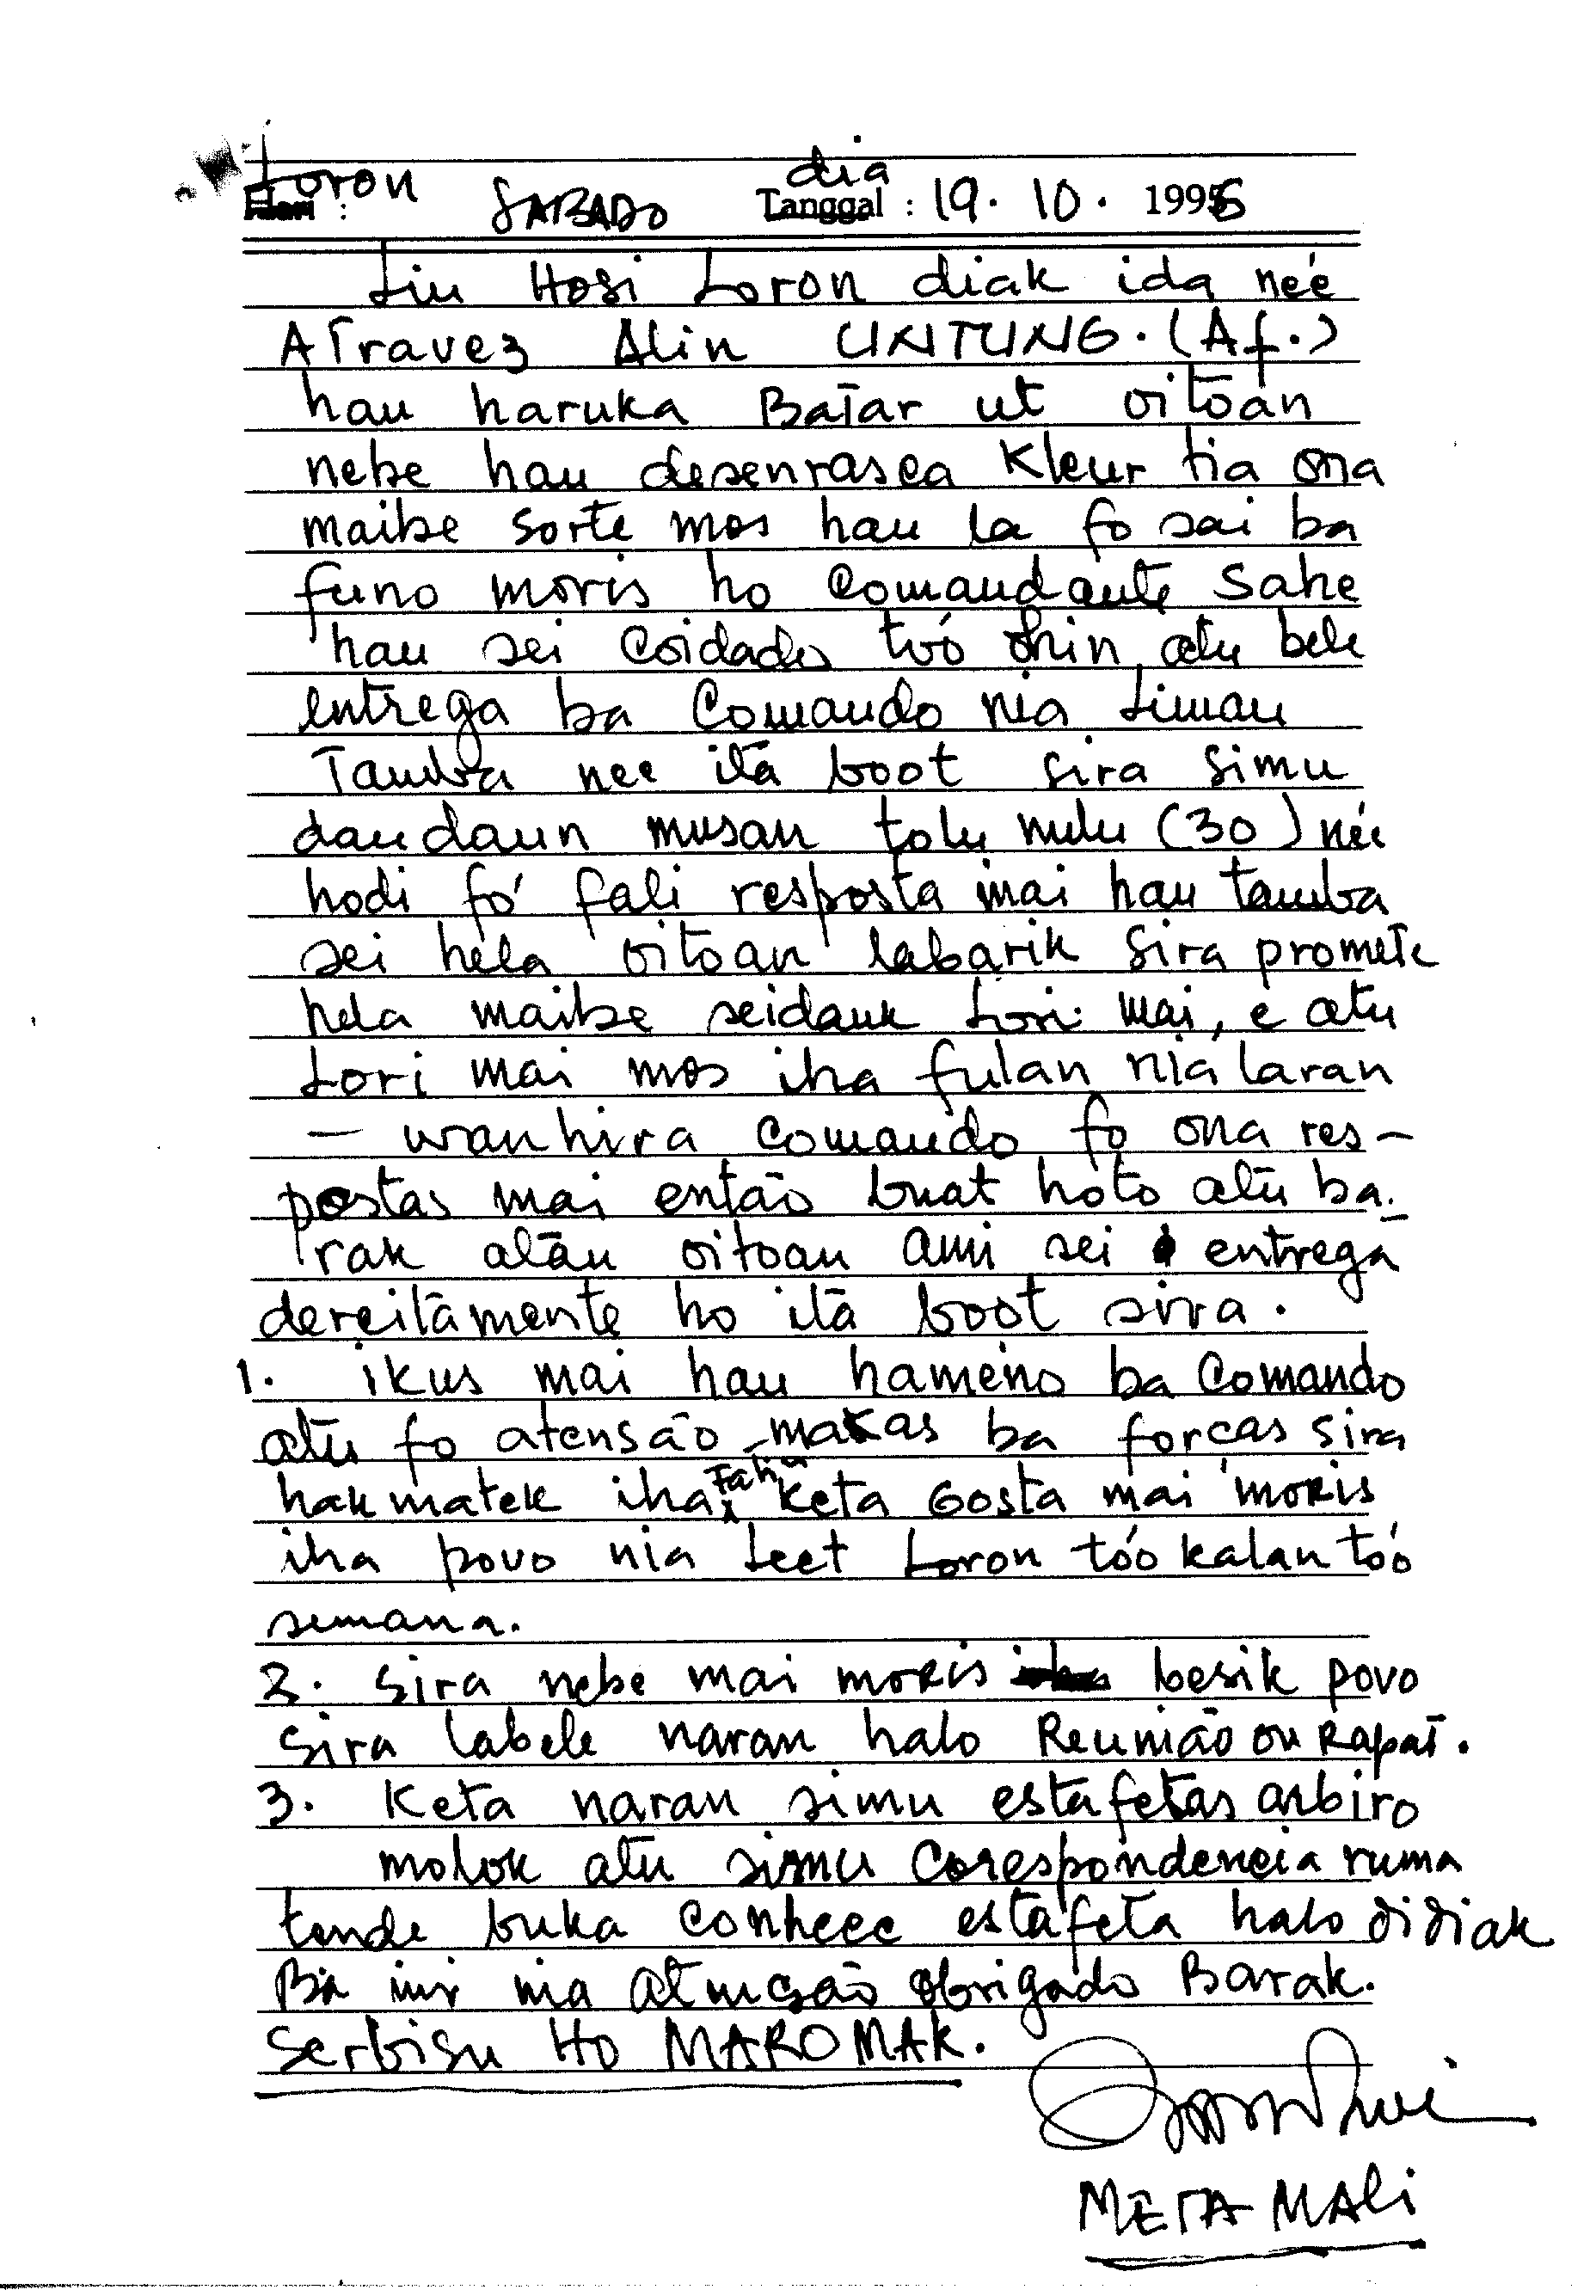 Loron : SABADO dia Tanggal : 19. 10. 1996
Liu Hosi Loron diak ida neé
ATravez Alin UNTUNG. (Af.)
hau haruka Batar ut oitoan
nebe hau desenrasca Kleur tia ona
maibe sorte mos hau la fo sai ba
funo moris ho Comandante Sahe
hau sei Coidados tóo ohin atu bele
entrega ba Comando nia Liman
Tamba nee ita boot sira simu
daudaun musan tolu nulu (30) neé
hodi fó fali resposta mai hau tamba
sei hela oitoan labarik sira promete
hela maibe seidauk Lori mai, e atu
Lori mai mos iha fulan nia laran
— wanhira Comando fo ona res-
postas mai então buat hoto atu ba-
rak atau oitoan Ami sei entrega
dereitamente ho ita boot sira.
1. ikus mai hau hameno ba Comando
atu fo atensão makas ba forcas sira
hakmatek iha Fatin keta Gosta mai moris
iha povo nia Leet Loron tóo kalan tóo
semana.
2. Sira nebe mai moris besik povo
Sira labele naran halo Reunião ou Rapat.
3. Keta naran simu estafetas arbiro
molok atu simu Corespondencia ruma
tende buka Conhece estafeta halo didiak
Ba imi nia atensão obrigado Barak.
Serbisu Ho MAROMAK.
META MALi